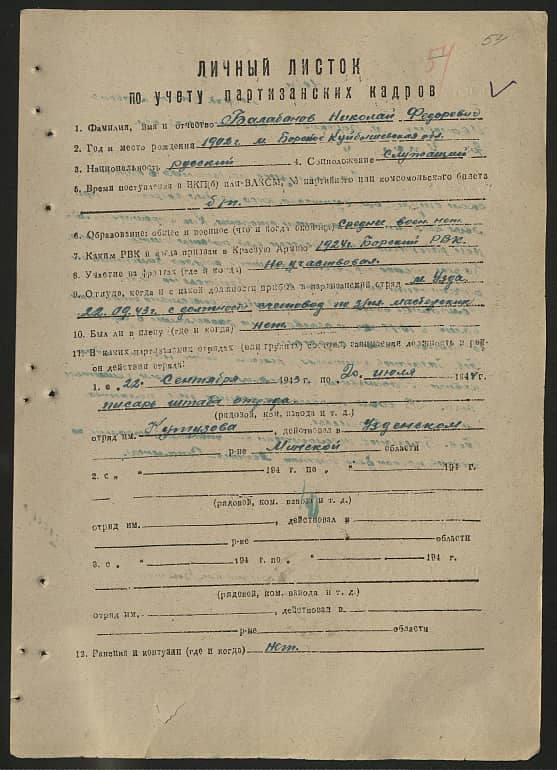 54
54
ЛИЧНЫЙ ЛИСТОК
по учету партизанских кадров
1. Фамилия, имя и отчество Балабанов Николай Федорович
2. Год и место рождения 1902г. м. Борское Куйбышевская обл.
3. Национальность русский 4. Соцположение Служащий
5. Время поступления в ВКП(б) или ВЛКСМ, № партийного или комсомольского билета
б/п.
6. Образование: общее и военное (что и когда окончил) Среднее воен. нет.
7. Каким РВК и когда призван в Красную Армию 1924г. Борский РВК.
8. Участие на фронтах (где и когда) Не участвовал.
9. Откуда, когда и с какой должности прибыл в партизанский отряд м. Узда
22.09.43г. с должност. счетовод мастерских
10. Был ли в плену (где и когда) нет.
11. В каких партизанских отрядах (или группах) состоял, занимаемая должность и рай-
он действия отряда:
1. с 22 Сентября 1943 г. по 20 июля 1944 г.
писарь штаба отряда
(рядовой, ком. взвода и т. д.)
отряд им. Кутузова, действовал в Узденском
р-не Минской области
2. с „ “ 194 г. по „ “ 194 г.
(рядовой, ком. взвода и т. д.)
отряд им. , действовал в
р-не области
3. с „ “ 194 г. по „ “ 194 г.
(рядовой, ком. взвода и т. д.)
отряд им. , действовал в
р-не области
12. Ранения и контузии (где и когда) нет.